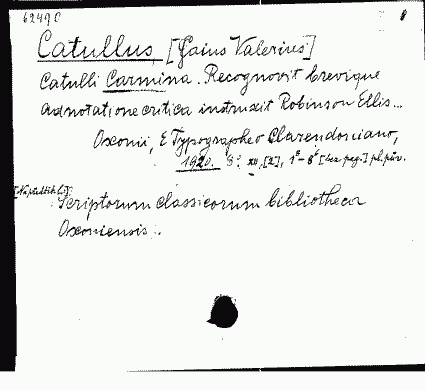 62490
Catullus, [Gaius Valerius]
Catulli Carmina. Recognovit brevique
adnotatione critica instruxit Robinson Ellis...
Oxonii, E Typographeo Clarendoniano,
1920. 8°. XII, [2], 1⁸– 8⁶ [bez pag.]
Scriptorum classicorum bibliotheca
Oxoniensis.